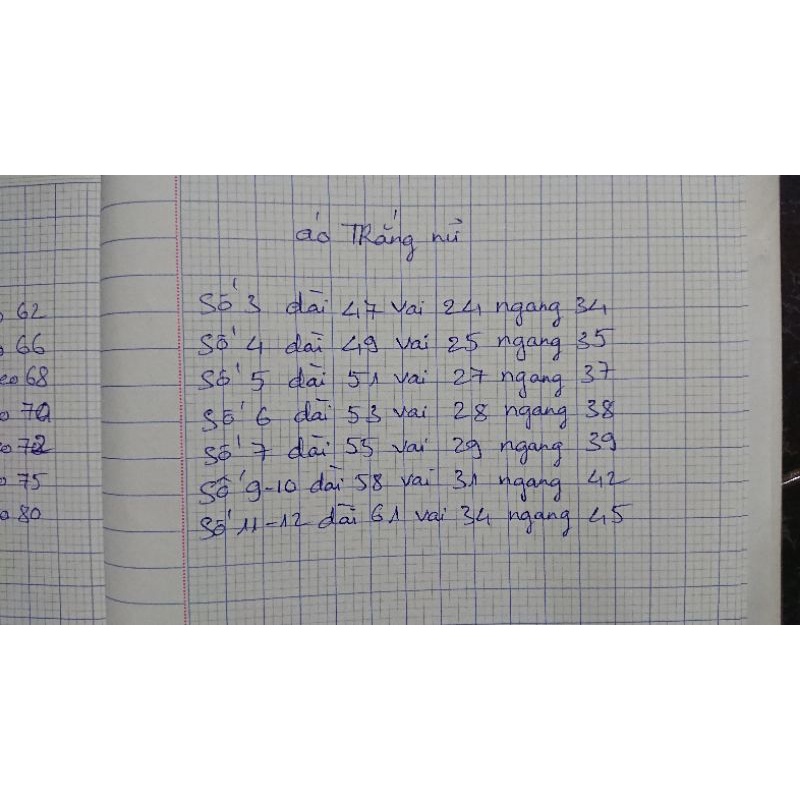 áo Trắng nữ
Số 3 dài 47 vai 24 ngang 34
Số 4 dài 49 vai 25 ngang 35
Số 5 dài 51 vai 27 ngang 37
Số 6 dài 53 vai 28 ngang 38
Số 7 dài 55 vai 29 ngang 39
Số 9-10 dài 58 vai 31 ngang 42
Số 11-12 dài 61 vai 34 ngang 45
62
66
68
70
72
75
80